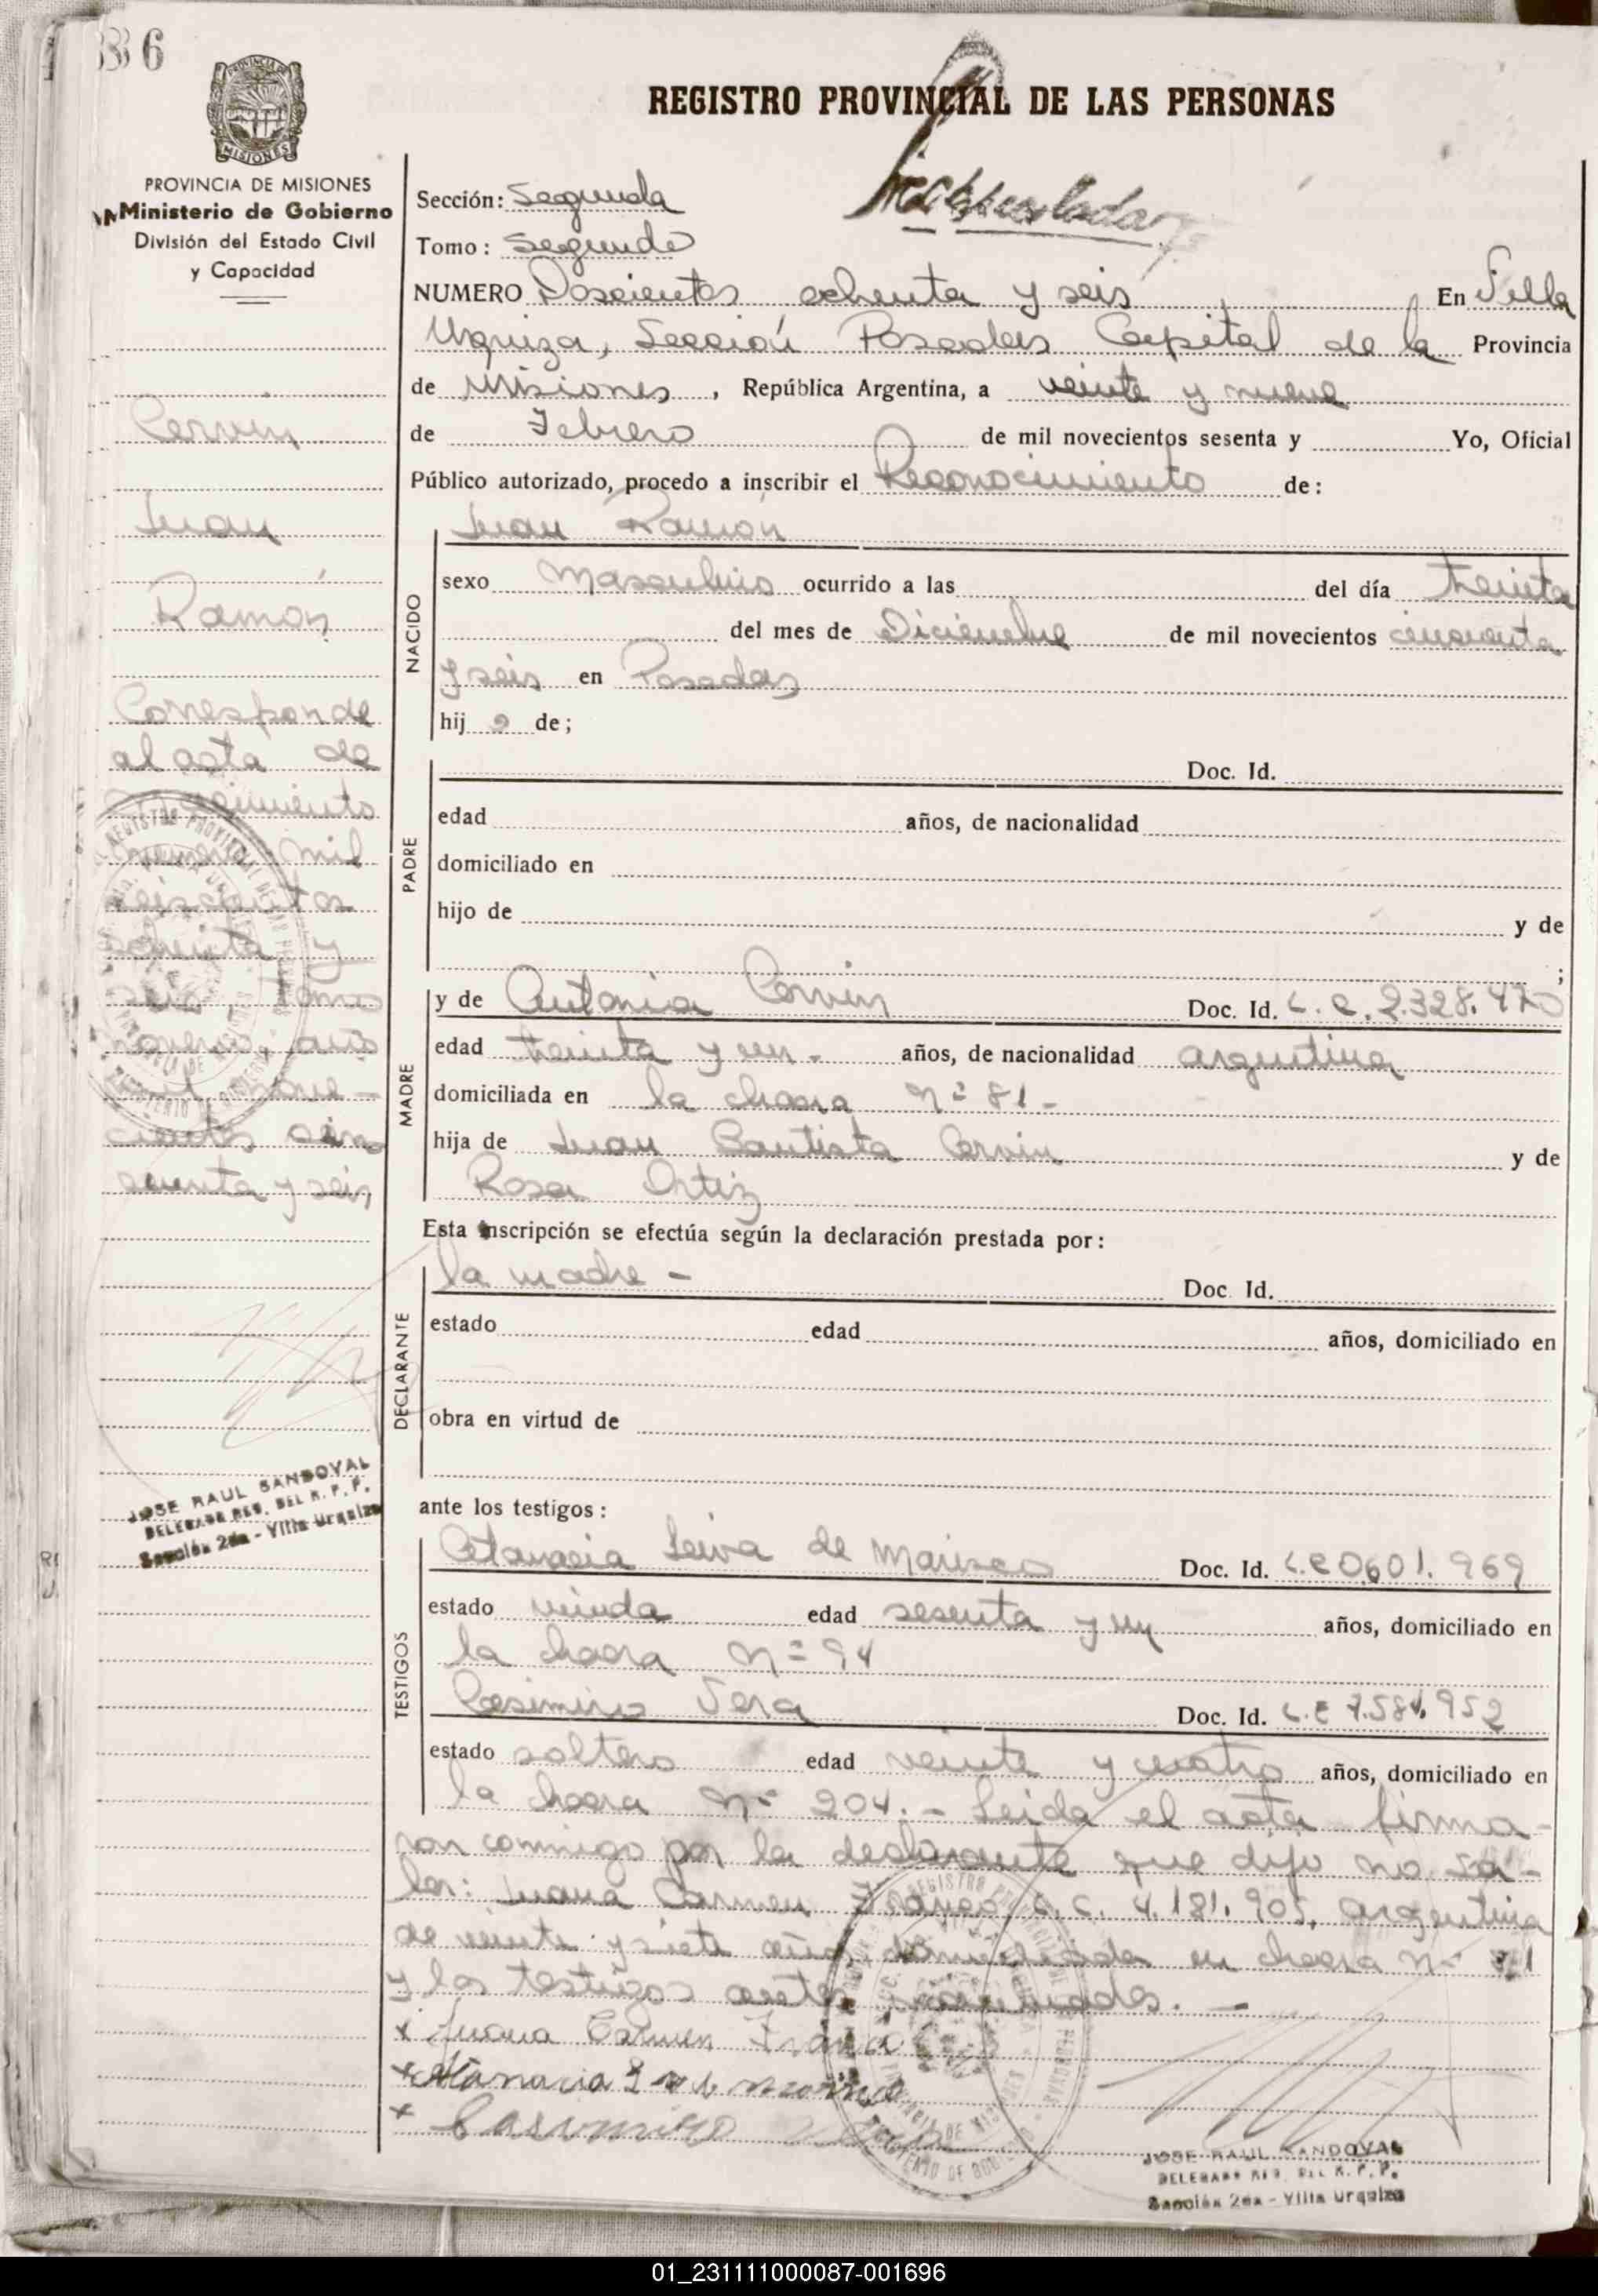 86
REGISTRO PROVINCIAL DE LAS PERSONAS
PROVINCIA DE MISIONES
Ministerio de Gobierno
División del Estado Civil
y Capacidad
Cervin
Juan
Ramón
Corresponde
al acta de
número mil
seiscientos
ochenta y
seis, tomo
año
mil nove-
cientos cin
cuenta y seis
JOSE RAUL SANDOVAL
DELEGADO REG. DEL R. P. P.
Sección 2da - Villa Urquiza
Sección: Segunda
Tomo: Segundo
NUMERO Doscientos ochenta y seis En Villa
Urquiza, Sección Posadas Capital de la Provincia
de Misiones, República Argentina, a veinte y nueve
de Febrero de mil novecientos sesenta y Yo, Oficial
Público autorizado, procedo a inscribir el Reconocimiento de:
Juan Ramón
NACIDO
sexo Masculino ocurrido a las del día treinta
del mes de Diciembre de mil novecientos cincuenta
y seis en Posadas
hijo de;
PADRE
Doc. Id.
edad años, de nacionalidad
domiciliado en
hijo de y de
;
MADRE
y de Antonia Cervin Doc. Id. L. C. 2.328.470
edad treinta y un - años, de nacionalidad argentina
domiciliada en la chacra Nº 81 -
hija de Juan Bautista Cervin y de
Rosa Ortiz
Esta inscripción se efectúa según la declaración prestada por:
DECLARANTE
la madre - Doc. Id.
estado edad años, domiciliado en
obra en virtud de
ante los testigos:
TESTIGOS
Atanacia Leiva de Doc. Id. L.C 0601.969
estado viuda edad sesenta y un años, domiciliado en
la chacra Nº 94
Casimiro Vera Doc. Id. L.E 7.584.952
estado soltero edad veinte y cuatro años, domiciliado en
la chacra Nº 204. - Leida el acta firma-
ron conmigo por la declarante que dijo no sa-
ber: Juana Carmen Franco, L. C. 4.181.905, argentina
de veinte y siete años, domiciliada en chacra Nº
y los testigos antes nombrados. -
x Juana Carmen Franco
x Atanacia
x Casimiro
JOSE RAUL SANDOVAL
DELEGADO REG. DEL R. P. P.
Sección 2da - Villa Urquiza
01_231111000087-001696